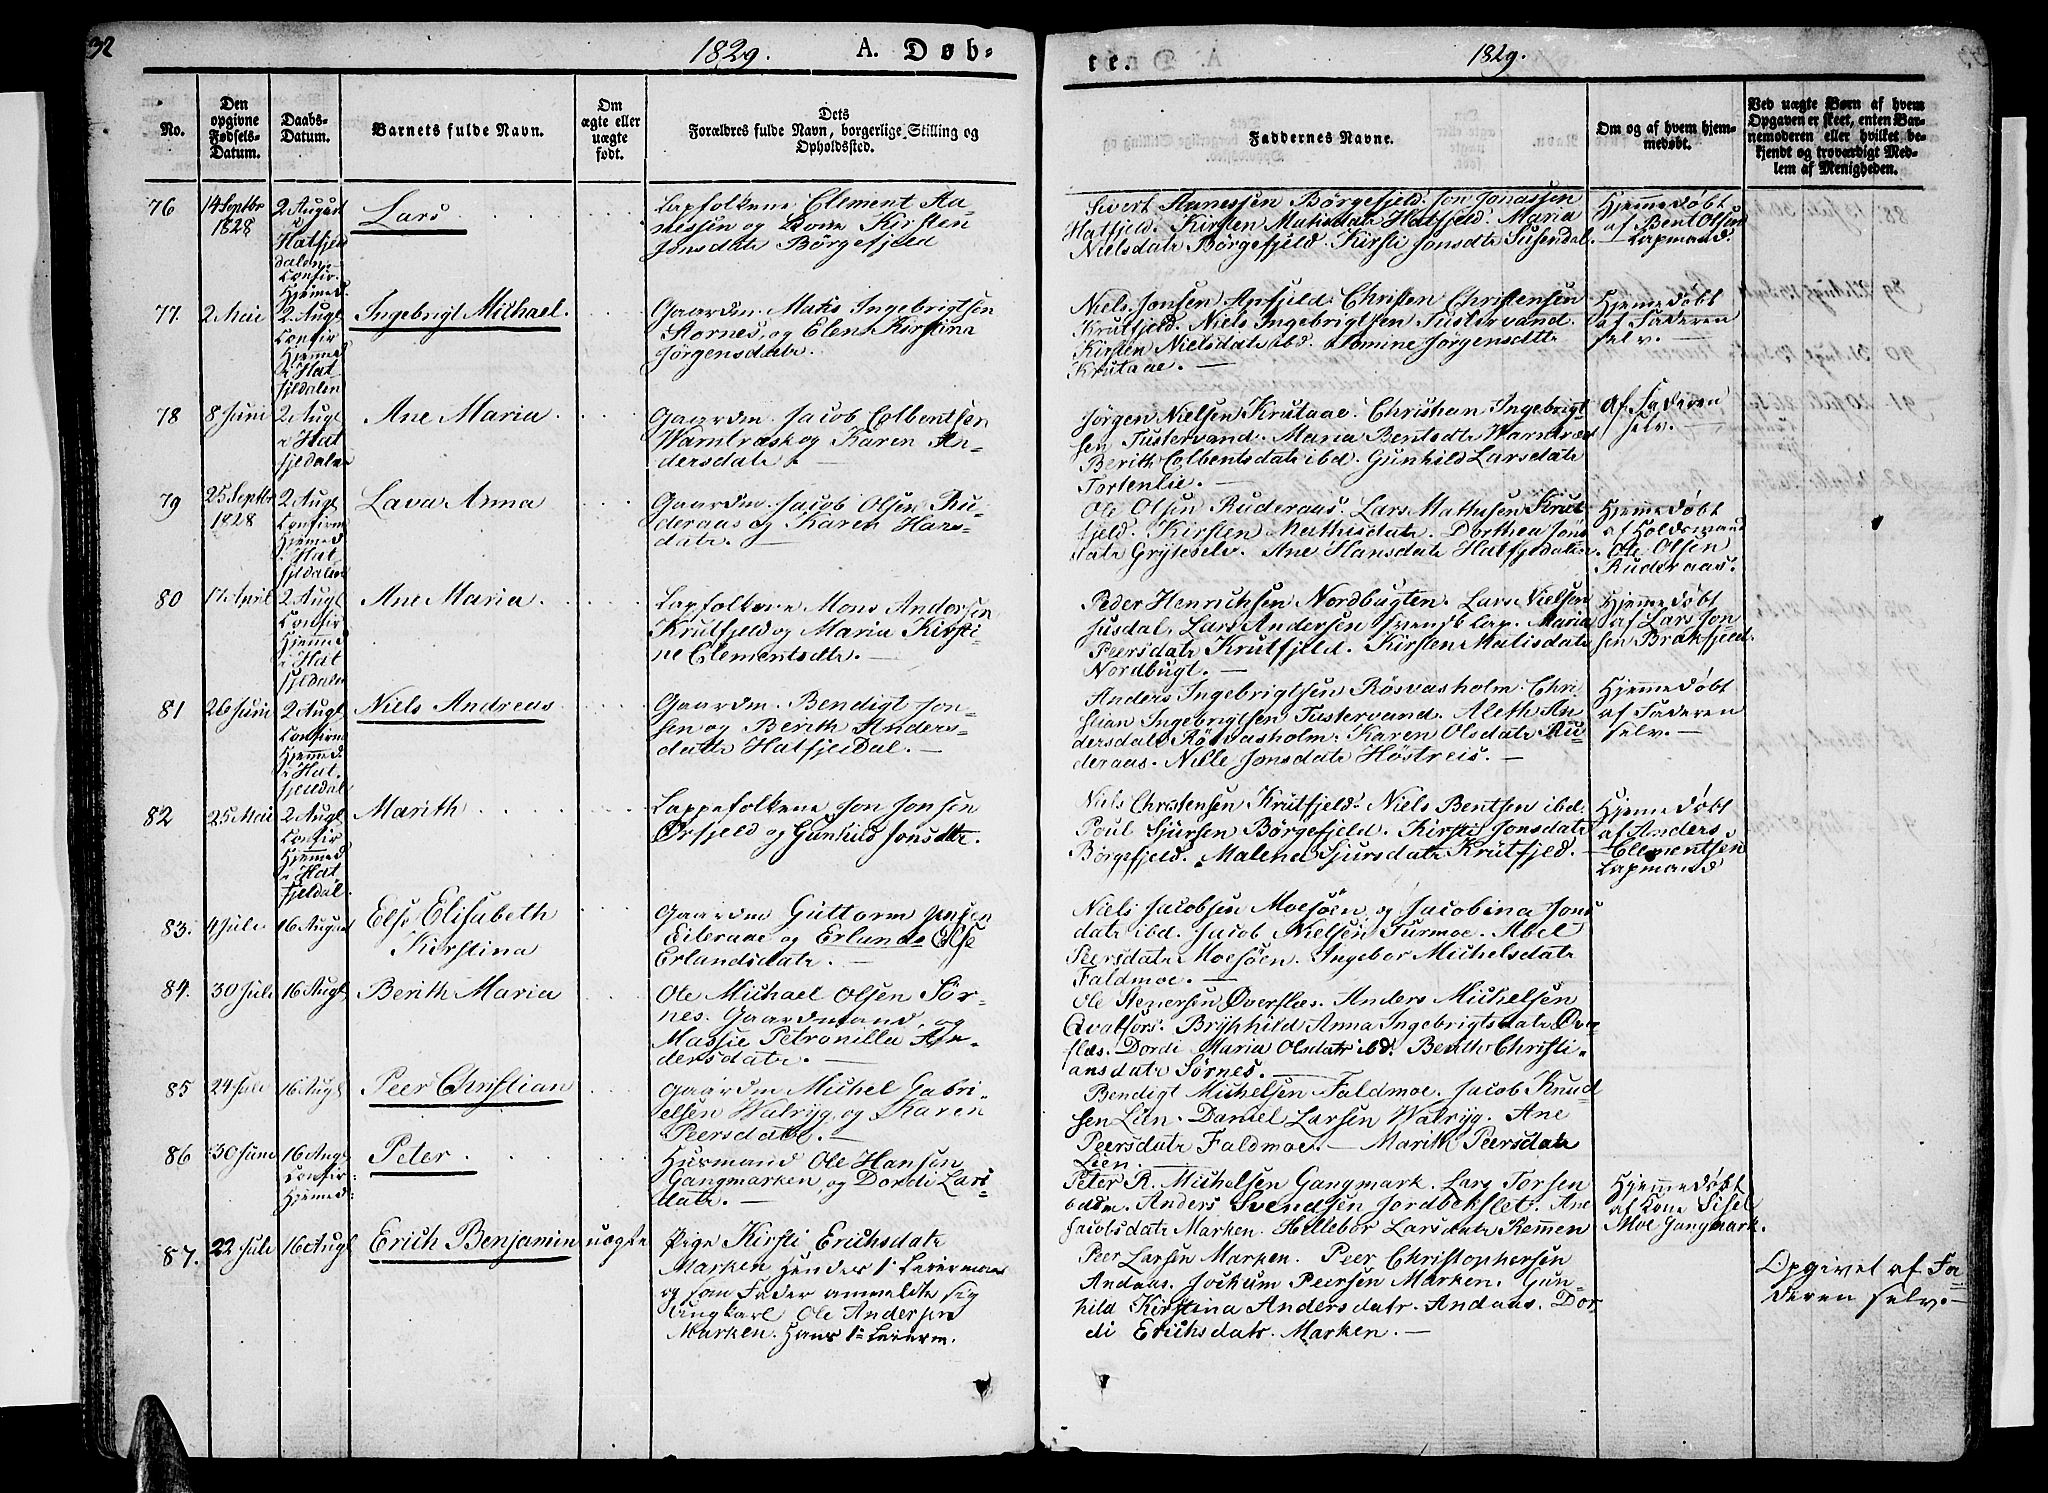 32
1829. A. Døb-
te. 1829.
No.
Den opgivne Fødsels-Datum.
Daabs-Datum.
Barnets fulde Navn.
Om ægte eller uægte født.
Dets
Forældres fulde Navn, borgerlige Stilling og
Opholdssted.
Faddernes Navne.
Om og af hvem hjem-
medøbt.
Ved uægte Børn af hvem
Opgaven er skeet, enten Bar-
nemoderen eller hvilket be-
kjendt og troværdigt Med-
lem af Menigheden.
76
14 Septbr
1828
2 August
i
Hatfjel
dalen
Confir.
Hjemed.
Lars
Lapfolkene Clement Aa-
nessen og Kone Kirsten
Jonsdatr Børgefjeld
Sivert Aanessen Børgefjeld. Jon Jonassen
Hatfjeld. Kirsten Matisdatr Hatfjeld. Maria
Nielsdatr Børgefjeld. Kirsti Jonsdtr Susendal.
Hjemmedøbt
af Bent Olsen
Lapmand.
77.
2 Mai
2 Augt
Confir
Hjemed
i Hat
fjeldalen
Ingebrigt Michael.
Gaardm. Mats Ingebrigtsen
Stornes, og Elen Kirstina
Jørgensdatr.
Niels Jonsen Apfjeld. Christen Christensen
Krutfjeld. Niels Ingebrigtsen Tustervand.
Kirsten Nielsdatr ibd. Jørgensdtr
Krutaae.
Hjemedøbt
af Faderen
selv.
78
8 Juni
2 Augt
i Hat
fjeldalen
Ane Maria
Gaardm. Jacob Colbentsen
Warntræsk og Karen An-
dersdatr.
Jørgen Nielsen Krutaae. Christian Ingebrigt
sen Tustervand. Maria Bentsdtr Warntræsk
Berith Colbentsdatr ibd. Gunhild Larsdatr
Tortenlie.
Af Faderen
selv.
79
25 Septbr
1828
2 Augt
Confirm
Hjemed
i Hat
fjeldalen
Lava Anna
Gaardm. Jacob Olsen Ru-
deraas og Karen Hans-
datr.
Ole Olsen Ruderaas. Lars Mathisen Krut
fjeld. Kirsten Mathisdatr. Dorthea Jons
datr Gryteselv. Ane Hansdatr Hatfjeldalen.
Hjemedøbt
af Holdsmand
Ole Olsen
Ruderaas.
80
17 April
2 Augt
Confir
Hjemed
i Hat
fjeldalen
Ane Maria
Lapfolkene Mons Andersen
Krutfjeld og Maria Kirsti-
ne Clementsdtr.
Peder Henrichsen Nordbugten. Lars Nielsen
Susdal, Lars Andersen svensk Lap. Maria
Peersdatr Krutfjeld. Kirsten Matisdatr
Nordbugt.
Hjemedøbt
af Lars Jon
sen Brakfjeld.
81
26 Juni
2 Augt
Confirm
Hjemed.
i Hat
fjeldal
Niels Andreas
Gaardm. Bendigt Jon-
sen og Berith Anders-
datr Hatfjeldal.
Anders Ingebrigtsen Røsvasholm. Chri
stian Ingebrigtsen Tustervand. Aleth An
dersdatr Røsvasholm. Karen Olsdatr Ru-
deraas. Nille Jonsdatr Høstreis.
Hjemedøbt
af Faderen
selv.
82
25 Mai
2 Augt
Confir
Hjemed
i Hat
fjeldal
Marith
Lappefolkene Jon Jonsen
Ørfjeld og Gunhild Jonsdtr.
Niels Christensen Krutfjeld. Niels Bentsen ibd.
Poul Sjursen Børgefjeld. Kirsti Jonsdatr
Børgefjeld. Malena Sjursdatr Krutfjeld.
Hjemedøbt
af Anders
Clementsen
Lapmand
83.
4 Juli
16 August
Else Elisabeth
Kirstina
Gaardm Guttorm Jensen
Eiteraae og Erlunds Else
Erlundsdatr.
Niels Jacobsen Moesøen, og Jacobina Jons
datr ibd. Jacob Nielsen Turmoe. Abel
Peersdatr Moesøen. Ingebor Michelsdatr
Faldmoe.
84.
30 Juli
16 Augt
Berith Maria
Ole Michael Olsen Sør-
nes. Gaardmand, og
Massie Petronilla An-
dersdatr.
Ole Stenersen Øverflæs. Anders Michelsen
Qvalfors. Brynhild Anna Ingebrigtsdatr Øver
flæs. Dordi Maria Olsdatr ibd. Berith Christi-
ansdatr Sørnes.
85
24 Juli
16 Augt
Peer Christian
Gaardm Michel Gabri-
elsen Walryg, og Karen
Peersdatr.
Bendigt Michelsen Faldmoe. Jacob Knud
sen Lien. Daniel Larsen Walryg. Ane
Peersdatr Faldmoe. Marith Peersdatr
Lien.
86
30 Juni
16 Augt
Confir
Hjemed.
Peter
Husmand Ole Hansen
Gangmarken, og Dordi Lars-
datr.
Peter R. Michelsen Gangmark. Lars Torsen
Anders Svendsen Jordbekslet. Ane
Jacobsdatr Marken. Hellebor Larsdatr Remmen
Hjemedøbt
af Kone Sisel
Moe Gangmark.
87.
22 Juli
16 Augt
Erich Benjamin
uægte
Pige Kirsti Erichsdatr
Marken Hendes 1ste Leiermaal
og som Fader anmeldte sig
Ungkarl Ole Andersen
Marken. Hans 1ste Leierm.
Peer Larsen Marken. Peer Christophersen
Andaas. Jochum Peersen Marken. Gun-
hild Kirstina Andersdatr. Andaas. Dor
di Erichsdatr. Marken.
Opgivet af Fa
deren selv.